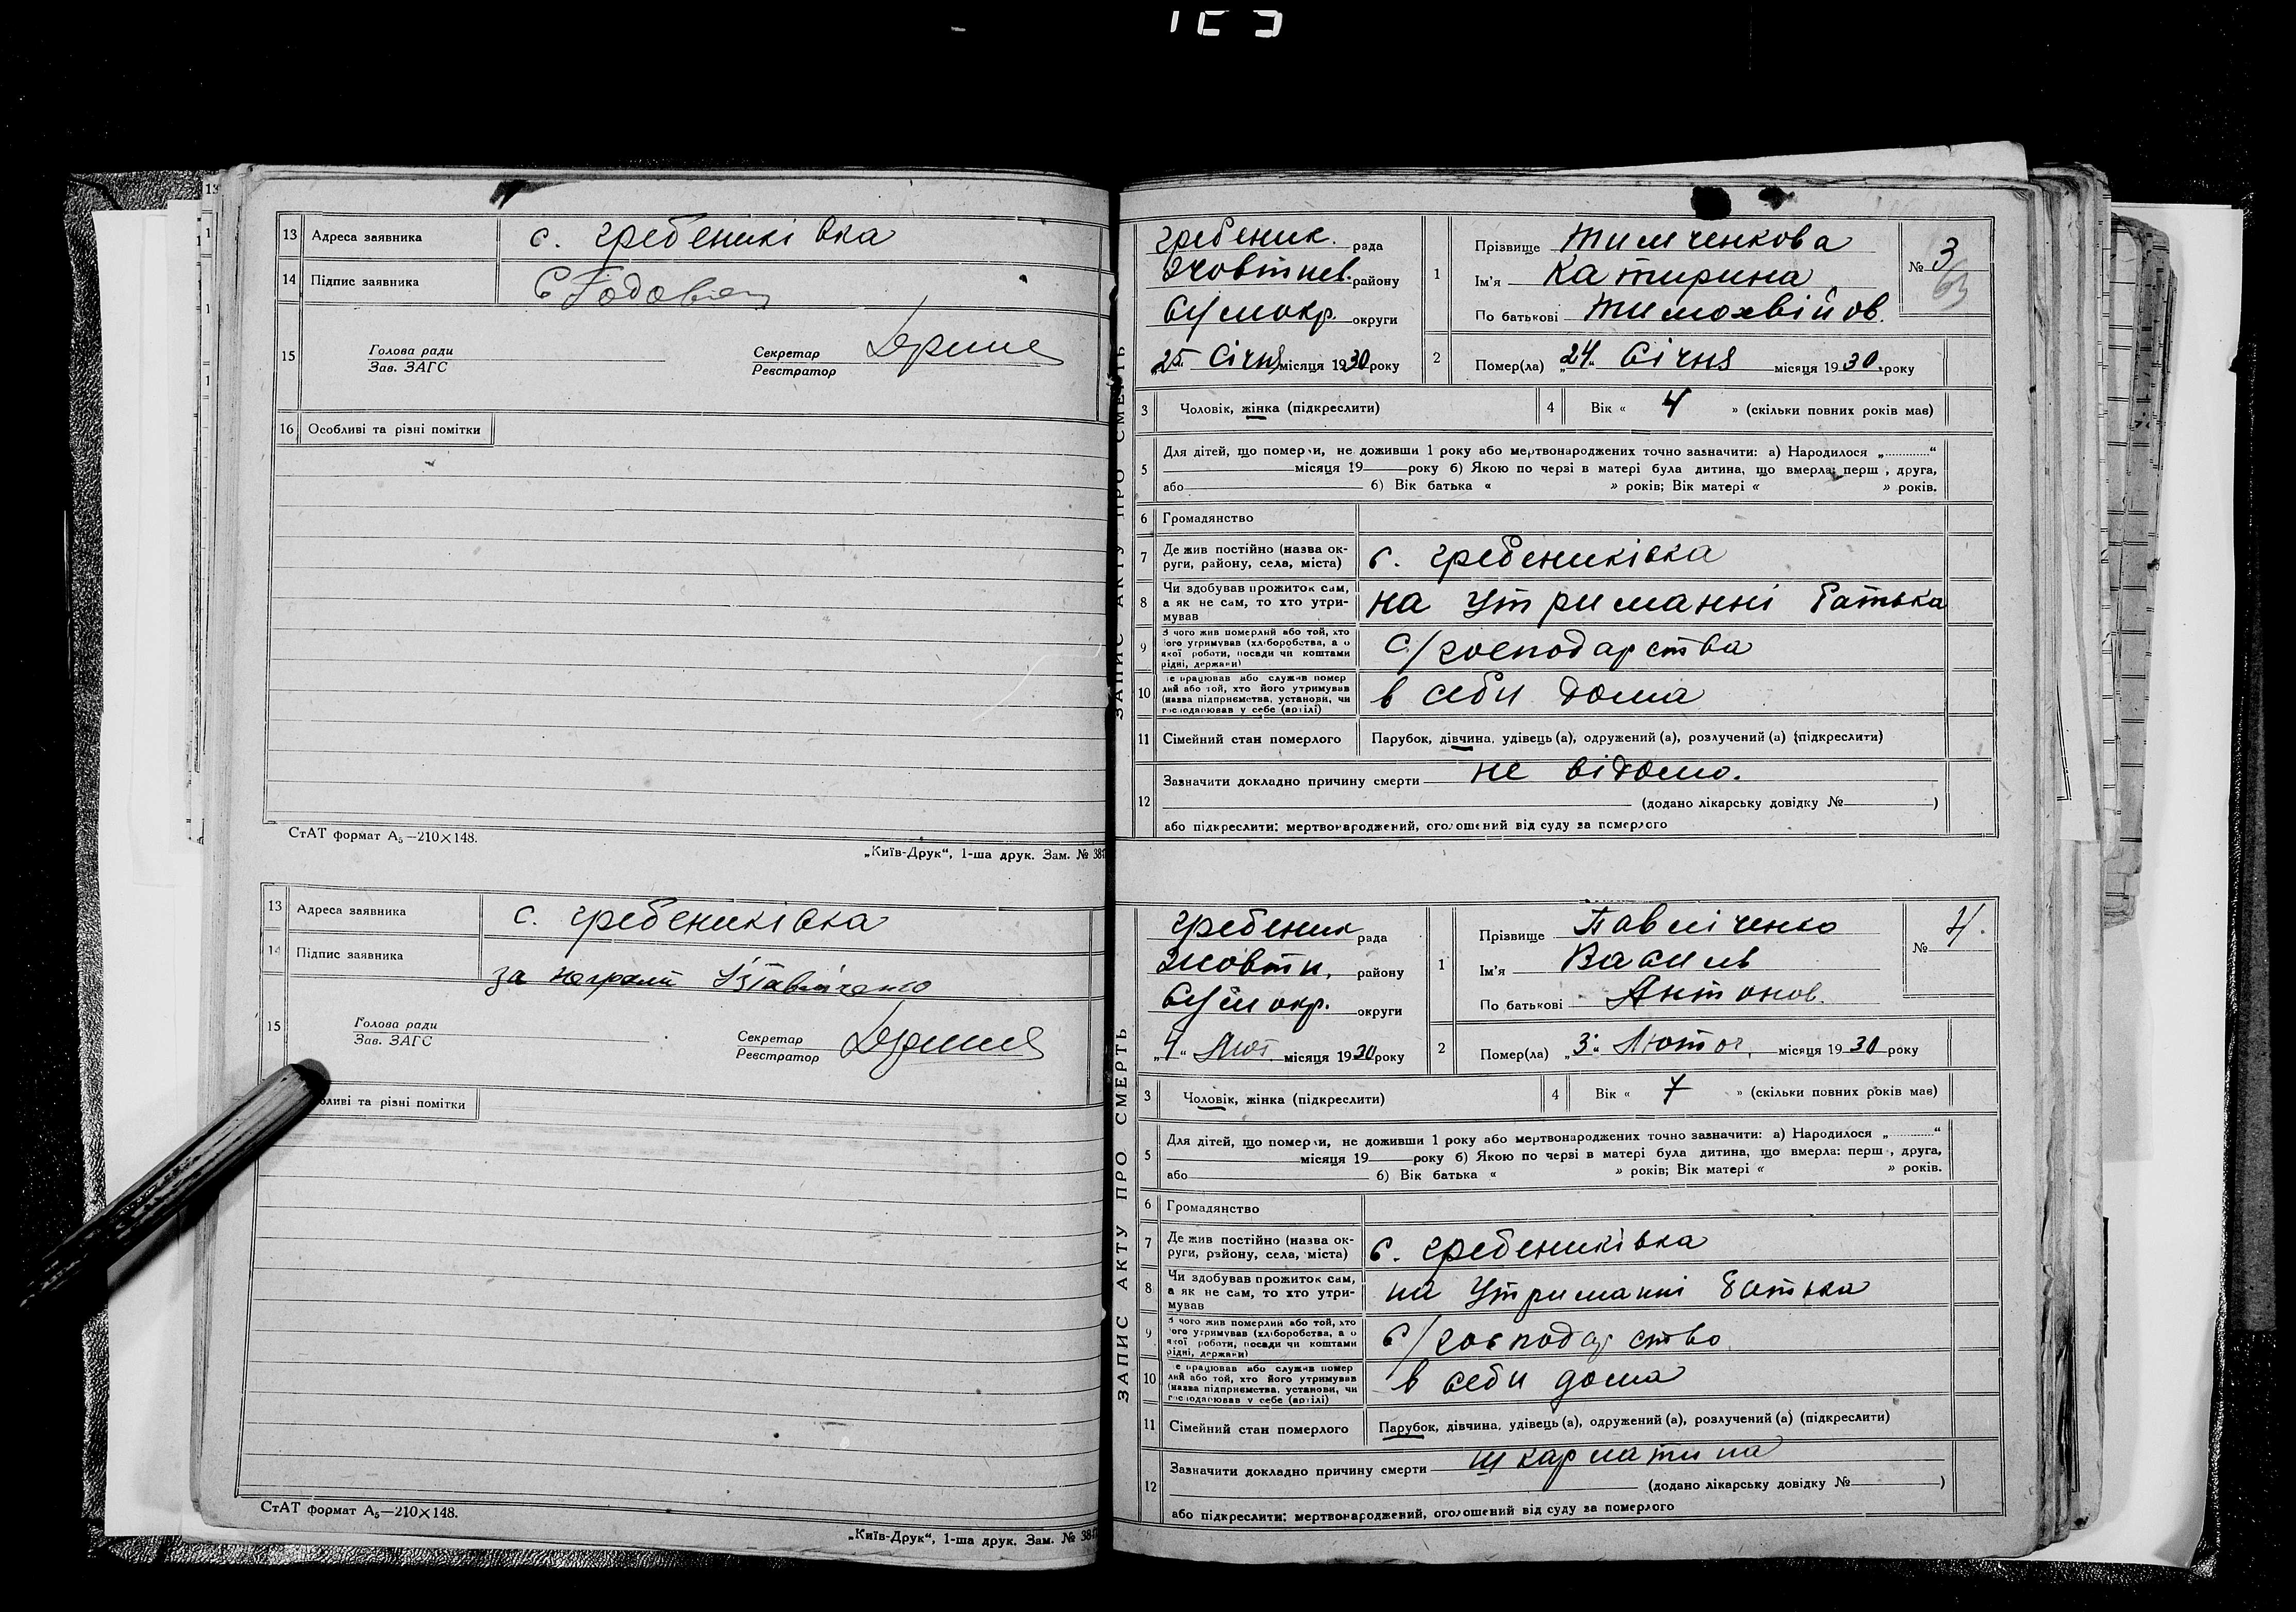 13 Адреса заявника с. Гребениківка
14 Підпис заявника
15 Голова ради
Зав. ЗАГС
Секретар
Реєстратор
16 Особливі та різні помітки
СтАТ формат А5—210×148.
„Київ-Друк“, 1-ша друк. Зам. № 38
13 Адреса заявника с. Гребениківка
14 Підпис заявника за неграм Павліченко
15 Голова ради
Зав. ЗАГС
Секретар
Реєстратор
ливі та різні помітки
СтАТ формат А5—210×148.
„Київ-Друк“, 1-ша друк. Зам. № 38
ЗАПИС АКТУ ПРО СМЕРТЬ
Гребеник. рада
Жовтнев. району
Сумокр. округи
„25“ Січня місяця 1930 року
1 Прізвище Тимченкова
Ім'я Катирина
По батькові Тимохвійов.
№ 3
63
2 Помер(ла) „24“ Січня місяця 1930 року
3 Чоловік, жінка (підкреслити)
4 Вік « 4 » (скільки повних років має)
5 Для дітей, що померли, не доживши 1 року або мертвонароджених точно зазначити: а) Народилося „ “
місяця 19 року б) Якою по черзі в матері була дитина, що вмерла: перш , друга,
або б) Вік батька « » років; Вік матері « » років.
6 Громадянство
7 Де жив постійно (назва ок-
руги, району, села, міста) с. Гребениківка
8 Чи здобував прожиток сам,
а як не сам, то хто утри-
мував на утриманні батька
9 З чого жив померлий або той, хто
ого утримував (хліборобства, а о
якої роботи, посади чи коштами
рідні, держави) С/господарства
10 е працював або служив помер
лий або той, хто його утримував
(назва підприємства, установи, чи
господарював у себе (артілі) в себи дома
11 Сімейний стан померлого Парубок, дівчина, удівець (а), одружений (а), розлучений (а) (підкреслити)
12 Зазначити докладно причину смерти не відомо.
(додано лікарську довідку № )
або підкреслити: мертвонароджений, оголошений від суду за померлого
ЗАПИС АКТУ ПРО СМЕРТЬ
Гребеник рада
Жовтн. району
Сумокр. округи
„4“ Лют місяця 1930 року
1 Прізвище Павліченко
Ім'я Василь
По батькові Антонов.
№ 4.
2 Помер(ла) „3“ Лютог. місяця 1930 року
3 Чоловік, жінка (підкреслити)
4 Вік « 7 » (скільки повних років має)
5 Для дітей, що померли, не доживши 1 року або мертвонароджених точно зазначити: а) Народилося „ “
місяця 19 року б) Якою по черзі в матері була дитина, що вмерла: перш , друга,
або б) Вік батька « » років; Вік матері « » років.
6 Громадянство
7 Де жив постійно (назва ок-
руги, району, села, міста) с. Гребениківка
8 Чи здобував прожиток сам,
а як не сам, то хто утри-
мував на утриманні батька
9 З чого жив померлий або той, хто
ого утримував (хліборобства, а о
якої роботи, посади чи коштами
рідні, держави) С/господарство
10 е працював або служив помер
лий або той, хто його утримував
(назва підприємства, установи, чи
господарював у себе (артілі) в себи дома
11 Сімейний стан померлого Парубок, дівчина, удівець (а), одружений (а), розлучений (а) (підкреслити)
12 Зазначити докладно причину смерти шкарлатина
(додано лікарську довідку № )
або підкреслити: мертвонароджений, оголошений від суду за померлого